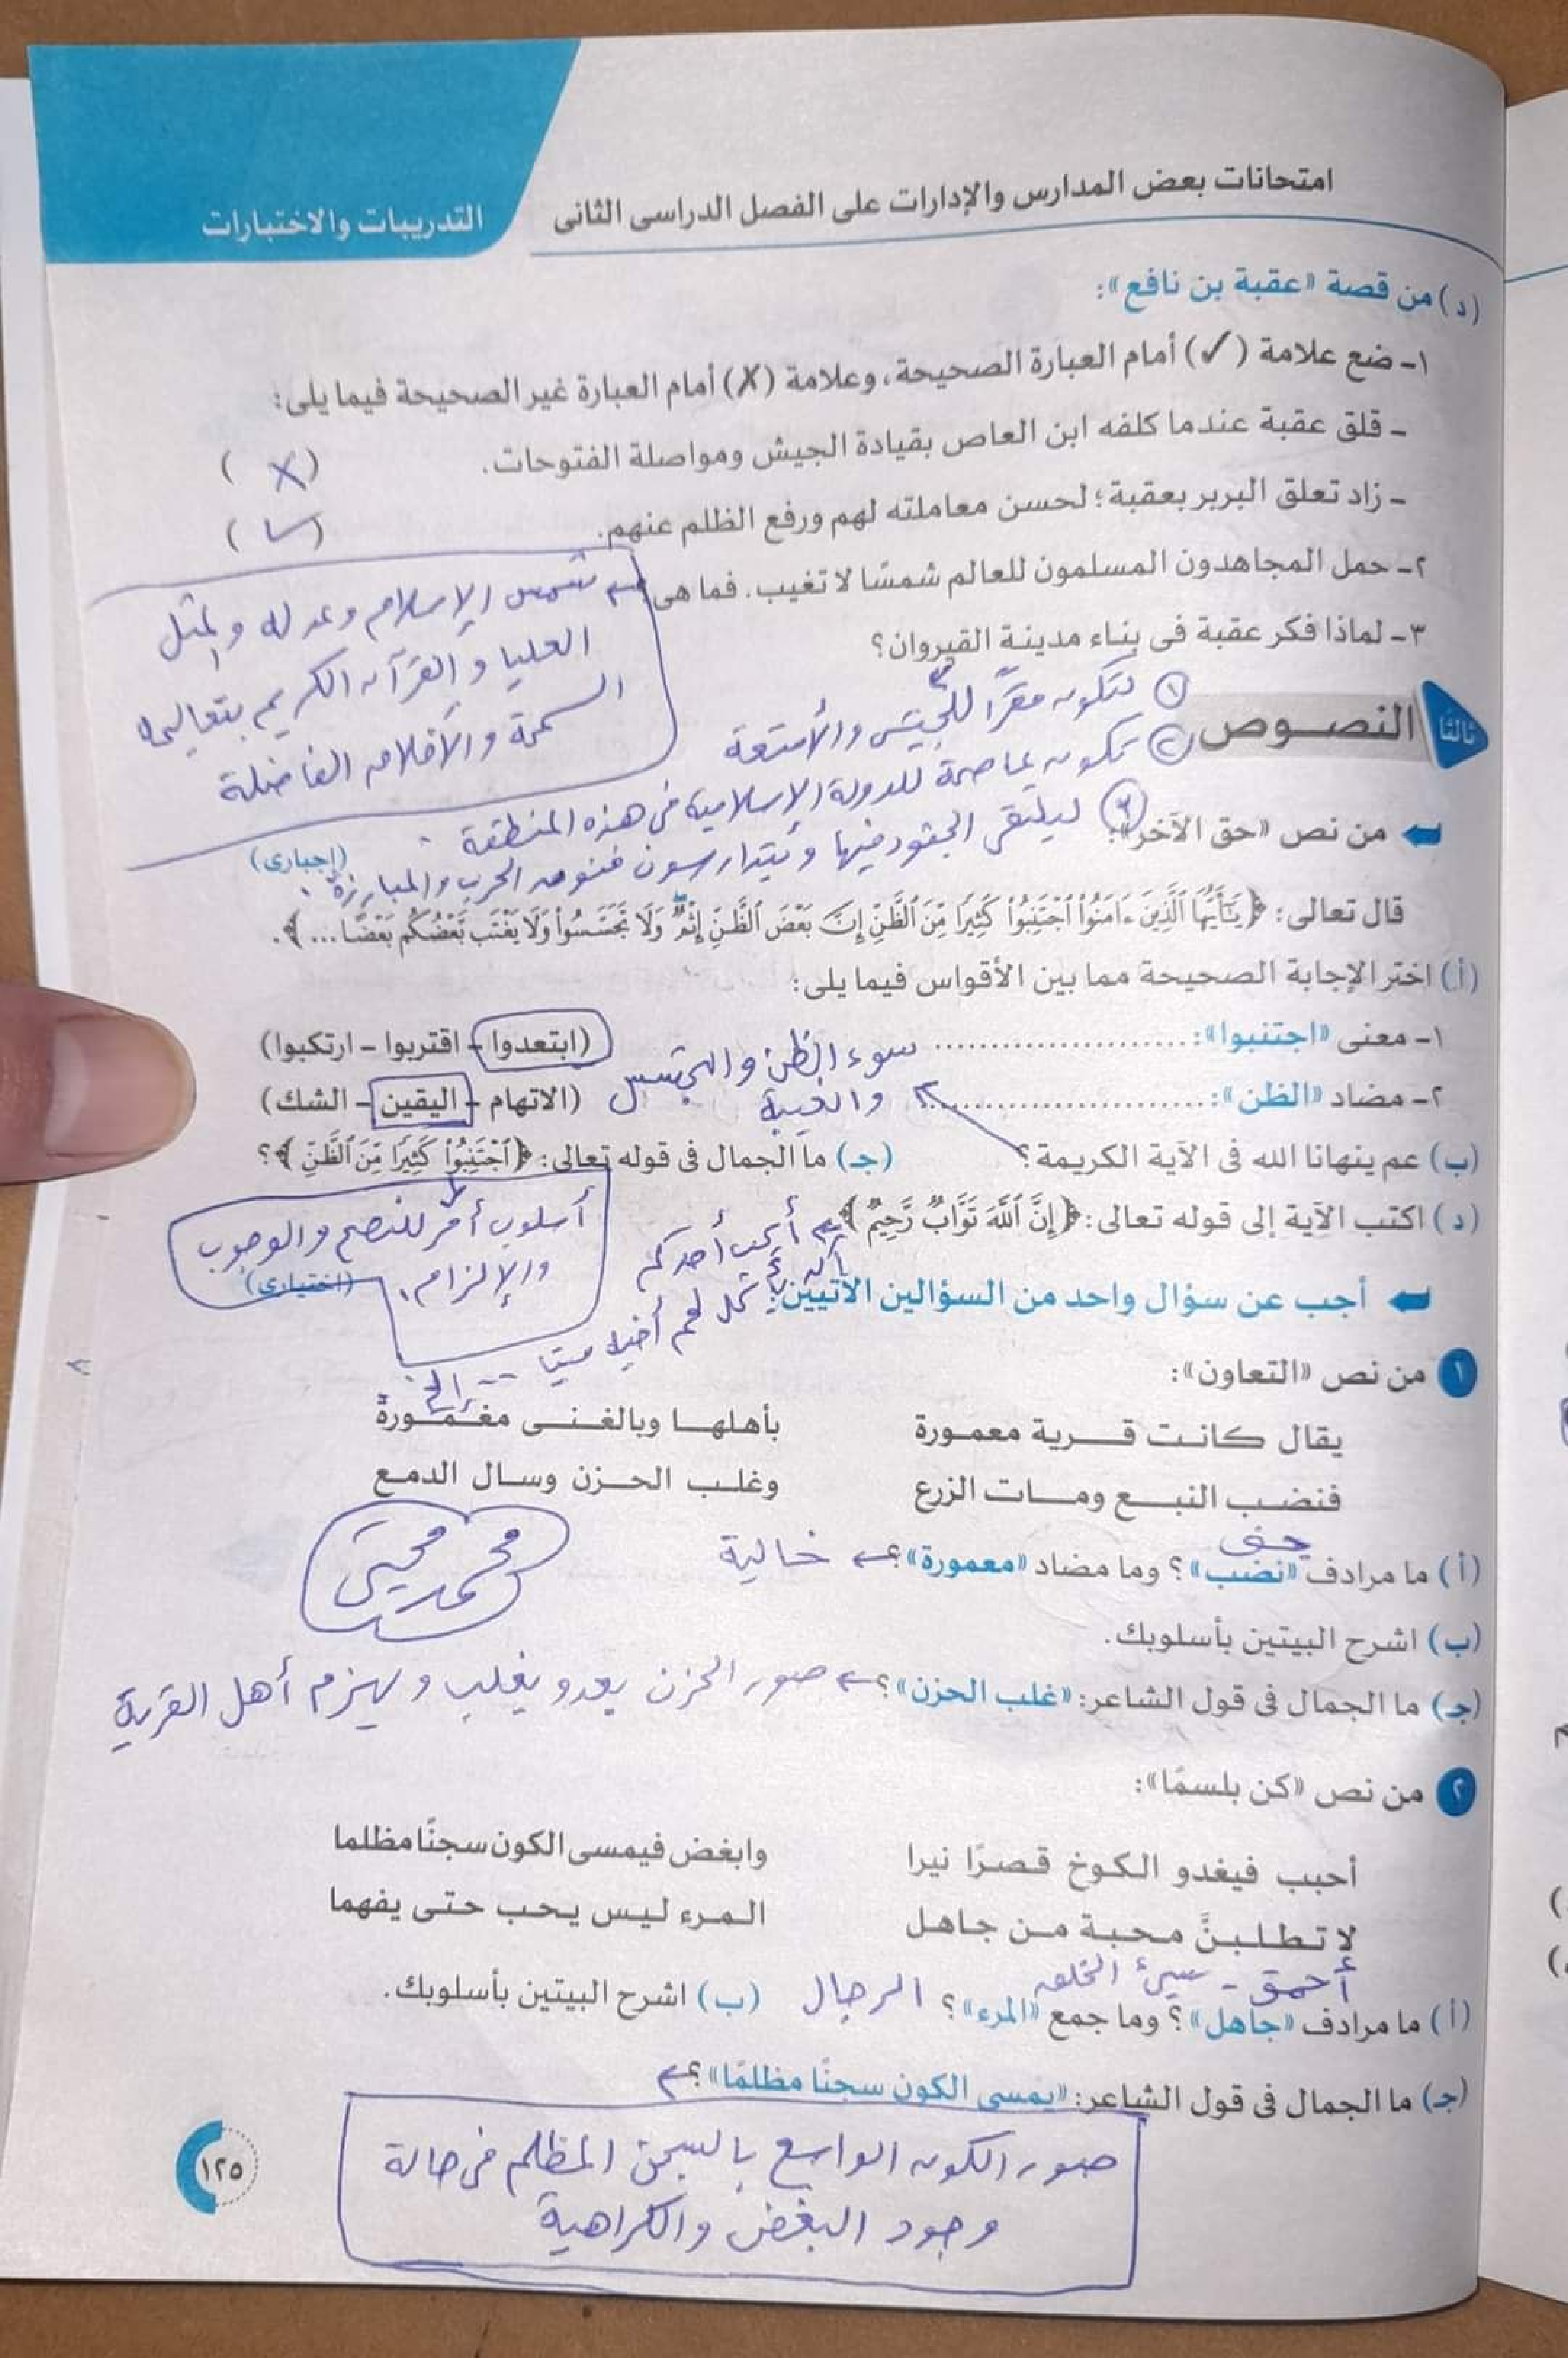 امتحانات بعض المدارس والإدارات على الفصل الدراسى الثانى
التدريبات والاختبارات
(د) من قصة «عقبة بن نافع»:
١- ضع علامة (✓) أمام العبارة الصحيحة، وعلامة (X) أمام العبارة غير الصحيحة فيما يلى:
- قلق عقبة عندما كلفه ابن العاص بقيادة الجيش ومواصلة الفتوحات. (X)
- زاد تعلق البربر بعقبة؛ لحسن معاملته لهم ورفع الظلم عنهم. (✓)
٢- حمل المجاهدون المسلمون للعالم شمسًا لا تغيب. فما هى؟
شمس الإسلام وعدله والمثل
العليا والقرآن الكريم بتعاليمه
السمحة والأخلاق الفاضلة
٣- لماذا فكر عقبة فى بناء مدينة القيروان؟
① لتكون مقرًا للجيش والأمتعة
② تكون عاصمة للدولة الإسلامية فى هذه المنطقة.
③ ليلتقى الجنود فيها ويتدارسون فنون الحرب والمبارزة.
ثالثًا النصوص
من نص «حق الآخر»: (إجبارى)
قال تعالى: ﴿يَٰٓأَيُّهَا ٱلَّذِينَ ءَامَنُوا۟ ٱجْتَنِبُوا۟ كَثِيرًا مِّنَ ٱلظَّنِّ إِنَّ بَعْضَ ٱلظَّنِّ إِثْمٌ وَلَا تَجَسَّسُوا۟ وَلَا يَغْتَب بَّعْضُكُم بَعْضًا ...﴾.
(أ) اختر الإجابة الصحيحة مما بين الأقواس فيما يلى:
١- معنى «اجتنبوا»: ........................ (ابتعدوا - اقتربوا - ارتكبوا)
٢- مضاد «الظن»: ........................ (الاتهام - اليقين - الشك)
سوء الظن والتجسس
والغيبة
(ب) عم ينهانا الله فى الآية الكريمة؟ (جـ) ما الجمال فى قوله تعالى: ﴿ٱجْتَنِبُوا۟ كَثِيرًا مِّنَ ٱلظَّنِّ﴾؟
أسلوب أمر للنصح والوجوب
والإلزام.
(د) اكتب الآية إلى قوله تعالى: ﴿إِنَّ ٱللَّهَ تَوَّابٌ رَّحِيمٌ﴾.
أيحب أحدكم
أن يأكل لحم أخيه ميتا -- إلخ.
أجب عن سؤال واحد من السؤالين الآتيين: (اختيارى)
١ من نص «التعاون»:
يقال كانت قرية معمورة بأهلها وبالغنى مغمورة
فنضب النبع ومات الزرع وغلب الحزن وسال الدمع
جف
(أ) ما مرادف «نضب»؟ وما مضاد «معمورة»؟ خالية
(ب) اشرح البيتين بأسلوبك.
(جـ) ما الجمال فى قول الشاعر: «غلب الحزن»؟ صور الحزن بعدو يغلب ويهزم أهل القرية
٢ من نص «كن بلسمًا»:
أحبب فيغدو الكوخ قصرًا نيرا وابغض فيمسى الكون سجنًا مظلما
لا تطلبنَّ محبة من جاهل المرء ليس يحب حتى يفهما
أحمق - سيئ الخلق
(أ) ما مرادف «جاهل»؟ وما جمع «المرء»؟ الرجال (ب) اشرح البيتين بأسلوبك.
(جـ) ما الجمال فى قول الشاعر: «يمسى الكون سجنًا مظلمًا»؟
صور الكون الواسع بالسجن المظلم فى حالة
وجود البغض والكراهية
١٢٥